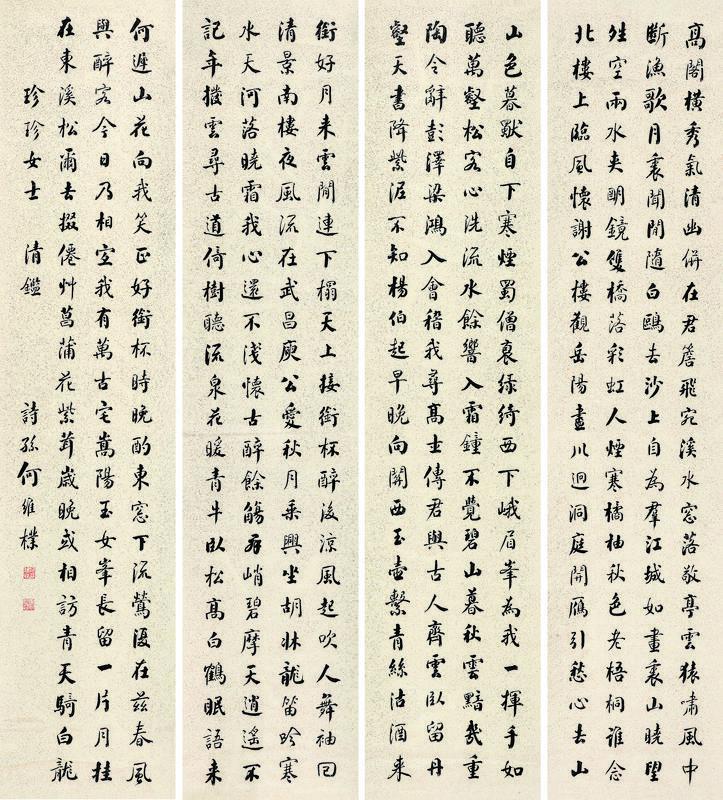 高閣橫秀氣清幽併在君簷飛宛溪水窓落敬亭雲猿嘯風中
斷漁歌月裏聞閒隨白鷗去沙上自為羣江城如畫裏山曉望
晴空兩水夾明鏡雙橋落彩虹人煙寒橘柚秋色老梧桐誰念
北樓上臨風懷謝公樓觀岳陽盡川迥洞庭開雁引愁心去山
色暮獸自下寒煙蜀僧裒綠綺西下峨眉峯為我一揮手如
聽萬壑松客心洗流水餘響入霜鐘不覺碧山暮秋雲黯幾重
陶令辭彭澤梁鴻入會稽我尋高士傳君與古人齊雲臥留丹
壑天書降紫泥不知楊伯起早晚向關西玉壺繫青絲沽酒來
銜好月來雲間連下榻天上接銜杯醉後涼風起吹人舞袖回
清景南樓夜風流在武昌庾公愛秋月乘興坐胡牀龍笛吟寒
水天河落曉霜我心還不淺懷古醉餘觴羣峭碧摩天逍遙不
記年撥雲尋古道倚樹聽流泉花暖青牛臥松高白鶴眠語來
何遲山花向我笑正好銜杯時晚酌東窓下流鶯復在茲春風
與醉客今日乃相宜我有萬古宅嵩陽玉女峯長留一片月挂
在東溪松爾去掇僊艸菖蒲花紫茸歲晚或相訪青天騎白龍
珍珍女士 清鑑 詩孫何維樸